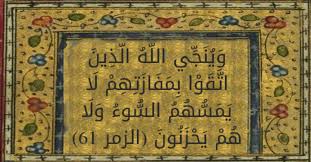 وَيُنَجِّي اللَّهُ الَّذِينَ
اتَّقَوْا بِمَفَازَتِهِمْ لَا
يَمَسُّهُمُ السُّوءُ وَلَا
هُمْ يَحْزَنُونَ (الزمر 61)